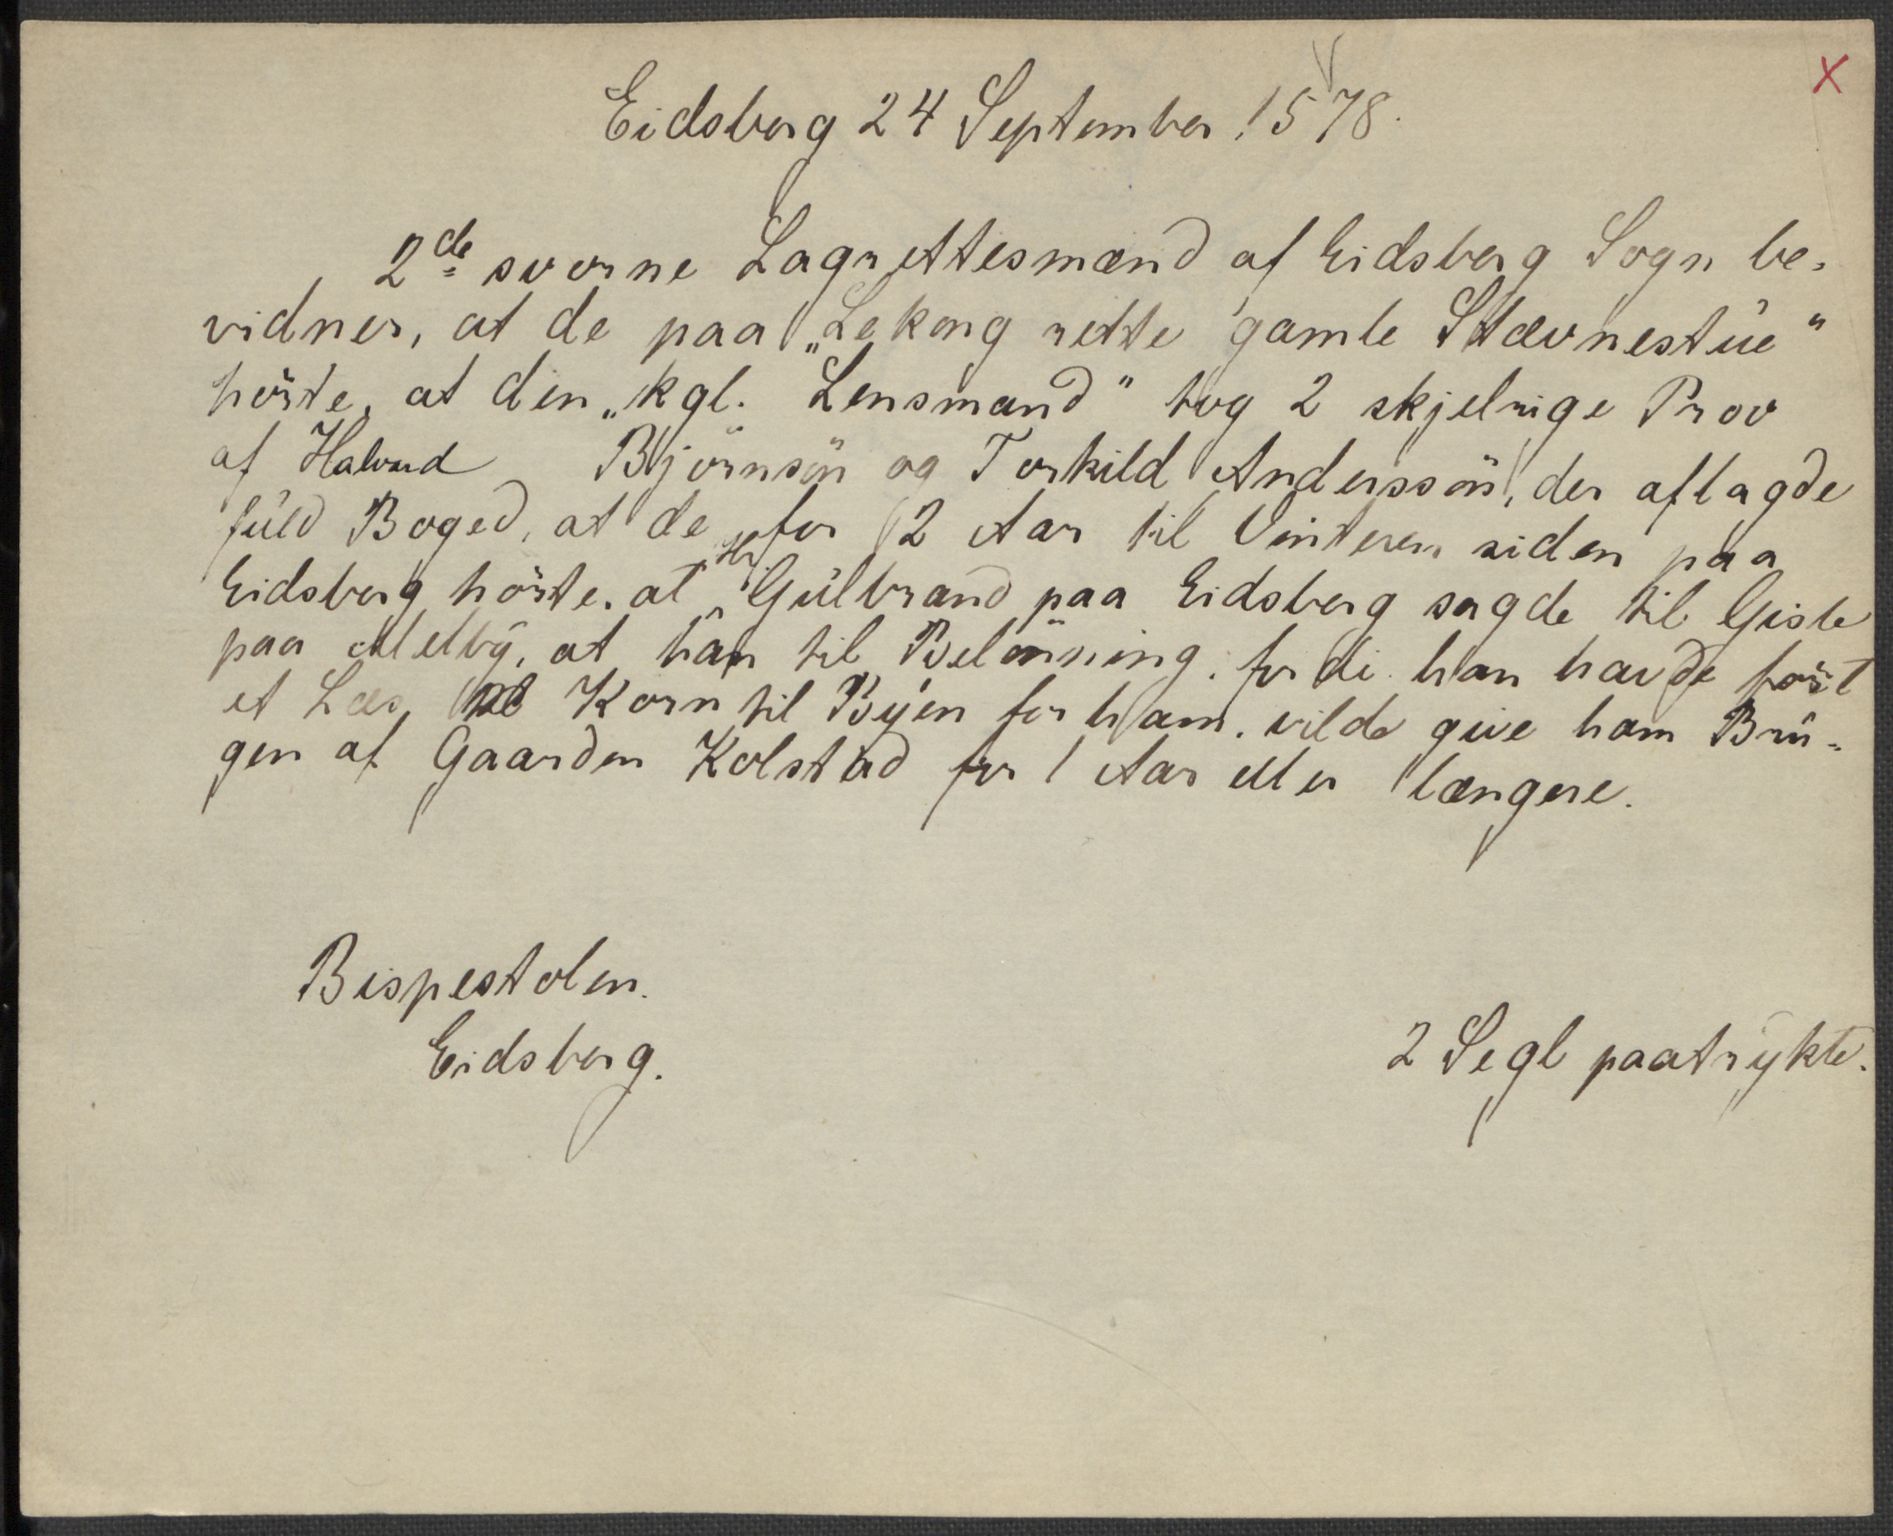 X
Eidsberg 24 September 1578.
2de svorne Lagrettesmænd af Eidsberg Sogn be-
vidner, at de paa „Lekeng rette gamle Stævnestue"
hörte, at den „kgl. Lensmand" tog 2 skjelrige Prov
af Halvard Björnsön og Torkild Anderssön, der aflagde
fuld Boged, at de for 12 Aar til Vinteren siden paa
Eidsberg hörte, at Hr Gulbrand paa Eidsberg sagde til Gisle
paa Melby, at han til Belönning, fordi han havde fört
et Læs Korn til Byen for ham, vilde give ham Bru-
gen af Gaarden Kolstad for 1 Aar eller længere.
Bispestolen.
Eidsberg.
2 Segl paatrykte.